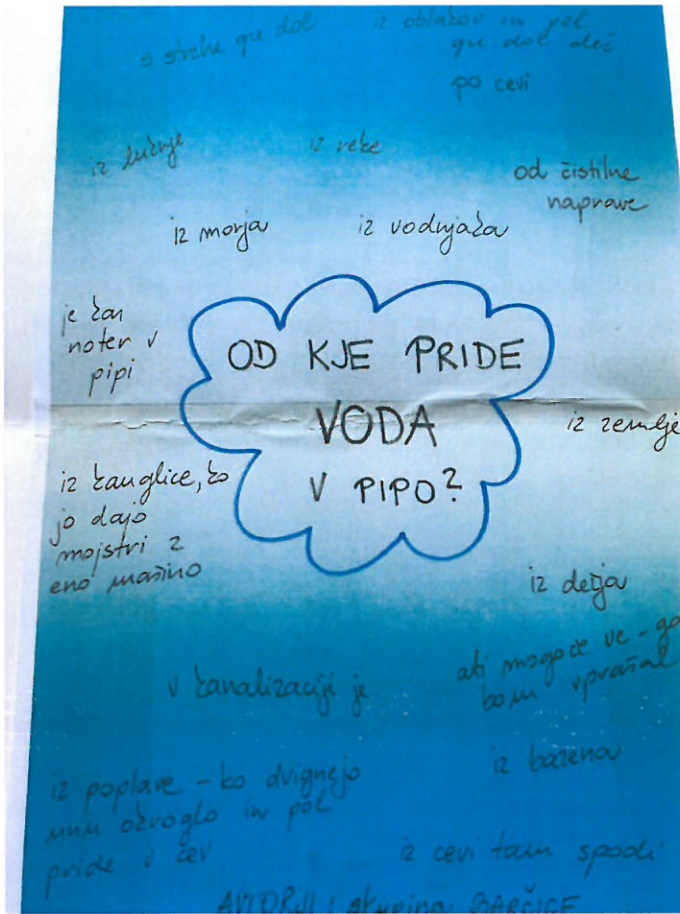 s strehe gre dol
iz oblakov in pol
gre dol dež
po cevi
iz lužnje
iz reke
od čistilne
naprave
iz morja
iz vodnjaka
je kar
noter v
pipi
OD KJE PRIDE
VODA
V PIPO?
iz zemlje
iz kanglice, ko
jo dajo
mojstri z
eno mašino
iz dežja
v kanalizaciji je
ati mogoče ve - ga
bom vprašal
iz bazena
iz poplave - ko dvignejo
unu okroglo in pol
pride v cev
iz cevi tam spodi
AVTORJI: skupina BARČICE